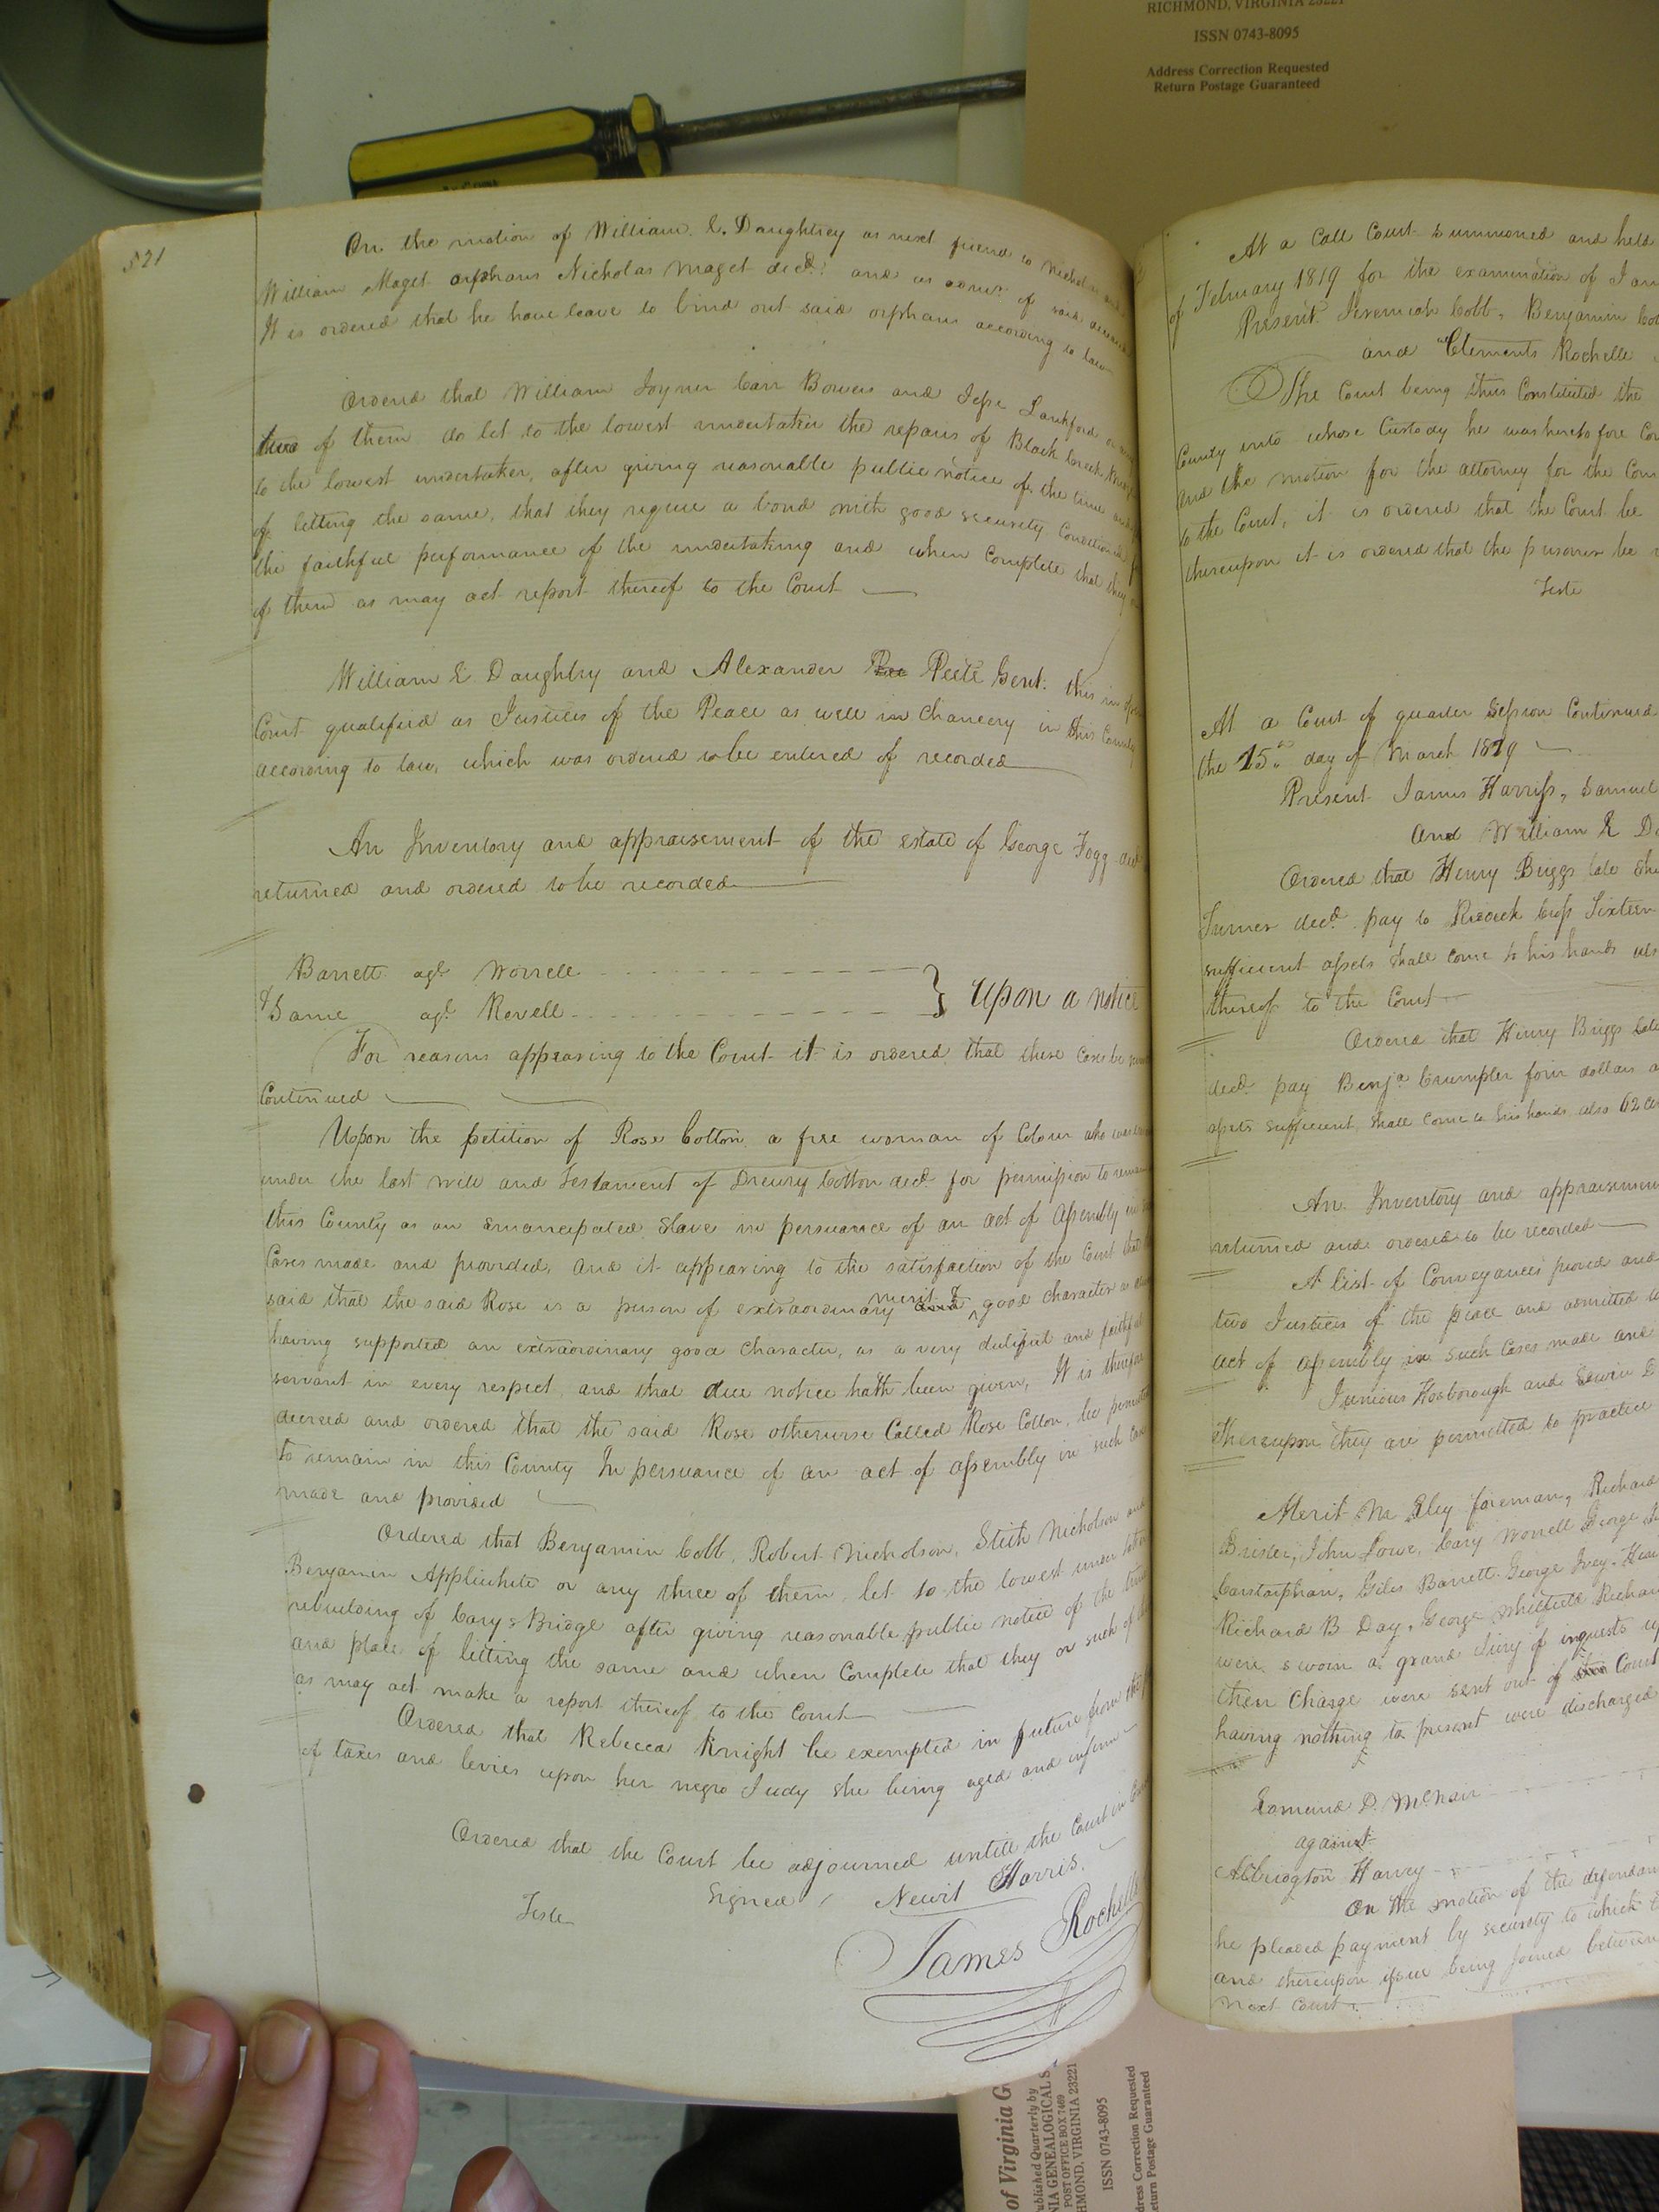 RICHMOND, VIRGINIA 23221
ISSN 0743-8095
Address Correction Requested
Return Postage Guaranteed
521
On the motion of William E. Daughtrey as next friend to Nicholas and
William Maget orphans Nicholas Maget decd. and as admr. of said
It is ordered that he have leave to bind out said orphans according to law
Ordered that William Joyner Carr Bowers and Jesse Lankford or any
two of them do let to the lowest undertaker the repairs of Black Creek
to the lowest undertaker, after giving reasonable public notice of the time and
of letting the same, that they require a bond with good security Conditioned for
the faithful performance of the undertaking and when Complete that they or
of them as may act report thereof to the Court
William E Daughtry and Alexander Pee Peete Gent. this in open
Court qualified as Justices of the Peace as well in Chancery in this County
according to law, which was ordered to be entered of recorded
An Inventory and appraisement of the estate of George Fogg decd
returned and ordered to be recorded
Barrett agt. Worrell
& Same agt. Revell } Upon a notice
For reasons appearing to the Court it is ordered that these Cases be
Continued
Upon the petition of Rose Cotton a free woman of Colour who was
under the last will and Testament of Drewry Cotton decd. for permission to remain
this County as an emancipated Slave in persuance of an act of Assembly in
Cases made and provided, and it appearing to the satisfaction of the Court that the
said that the said Rose is a person of extraordinary merit & and good character
having supported an extraordinary good Character, as a very dutiful and faithful
servant in every respect, and that due notice hath been given, It is therefore
decreed and ordered that the said Rose otherwise Called Rose Cotton, be permitted
to remain in this County In persuance of an act of assembly in such case
made and provided
Ordered that Benjamin Cobb, Robert Nicholson, Stith Nicholson and
Benjamin Applewhite or any three of them let to the lowest undertaker
rebuilding of Carys Bridge after giving reasonable public notice of the time
and place of letting the same and when Complete that they or such of
as may act make a report thereof to the Court
Ordered that Rebecca Knight be exempted in future from the
of taxes and levies upon her negro Judy she being aged and infirm
Ordered that the Court be adjourned untill the Court in
Signed Newit Harris.
Teste
James Rochelle
At a Call Court Summoned and held
of February 1819 for the examination of
Present Jeremiah Cobb, Benjamin
and Clements Rochelle
The Court being thus Constituted the
County into whose Custody he was heretofore
and the motion for the attorney for the
to the Court, it is ordered that the Court be
thereupon it is ordered that the prisoner be
Teste
At a Court of quarter Session Continued
the 15th day of March 1819
Present James Harriss, Samuel
And William E
Ordered that Henry Briggs late
Turner decd. pay to Riddick Cross Sixteen
sufficient assets shall come to his hands
thereof to the Court
Ordered that Henry Briggs late
decd. pay Benja Crumpler four dollars
assets sufficient shall come to his hands also 62
An Inventory and appraisement
returned and ordered to be recorded
A list of Conveyances proved and
two Justices of the peace and admitted
act of assembly in such Cases made and
Junious Hosborough and Edwin D
Thereupon they are permitted to practice
Merit M Eley foreman, Richard
John Lowe, Cary Worrell George
Carstarphan, Giles Barrett George Ivey
Richard B Day, George Whitfield
were sworn a grand Jury of inquests
their Charge were sent out of Court
having nothing to present were discharged
Edmund D. McNair
against
Abbington Harvey
On the motion of the defendant
he pleaded payment by security to which
and thereupon issue being joined between
next Court
of Virginia
Published Quarterly by
VIRGINIA GENEALOGICAL S
POST OFFICE BOX 7469
RICHMOND, VIRGINIA 23221
ISSN 0743-8095
Address Correction Requested
Return Postage Guaranteed